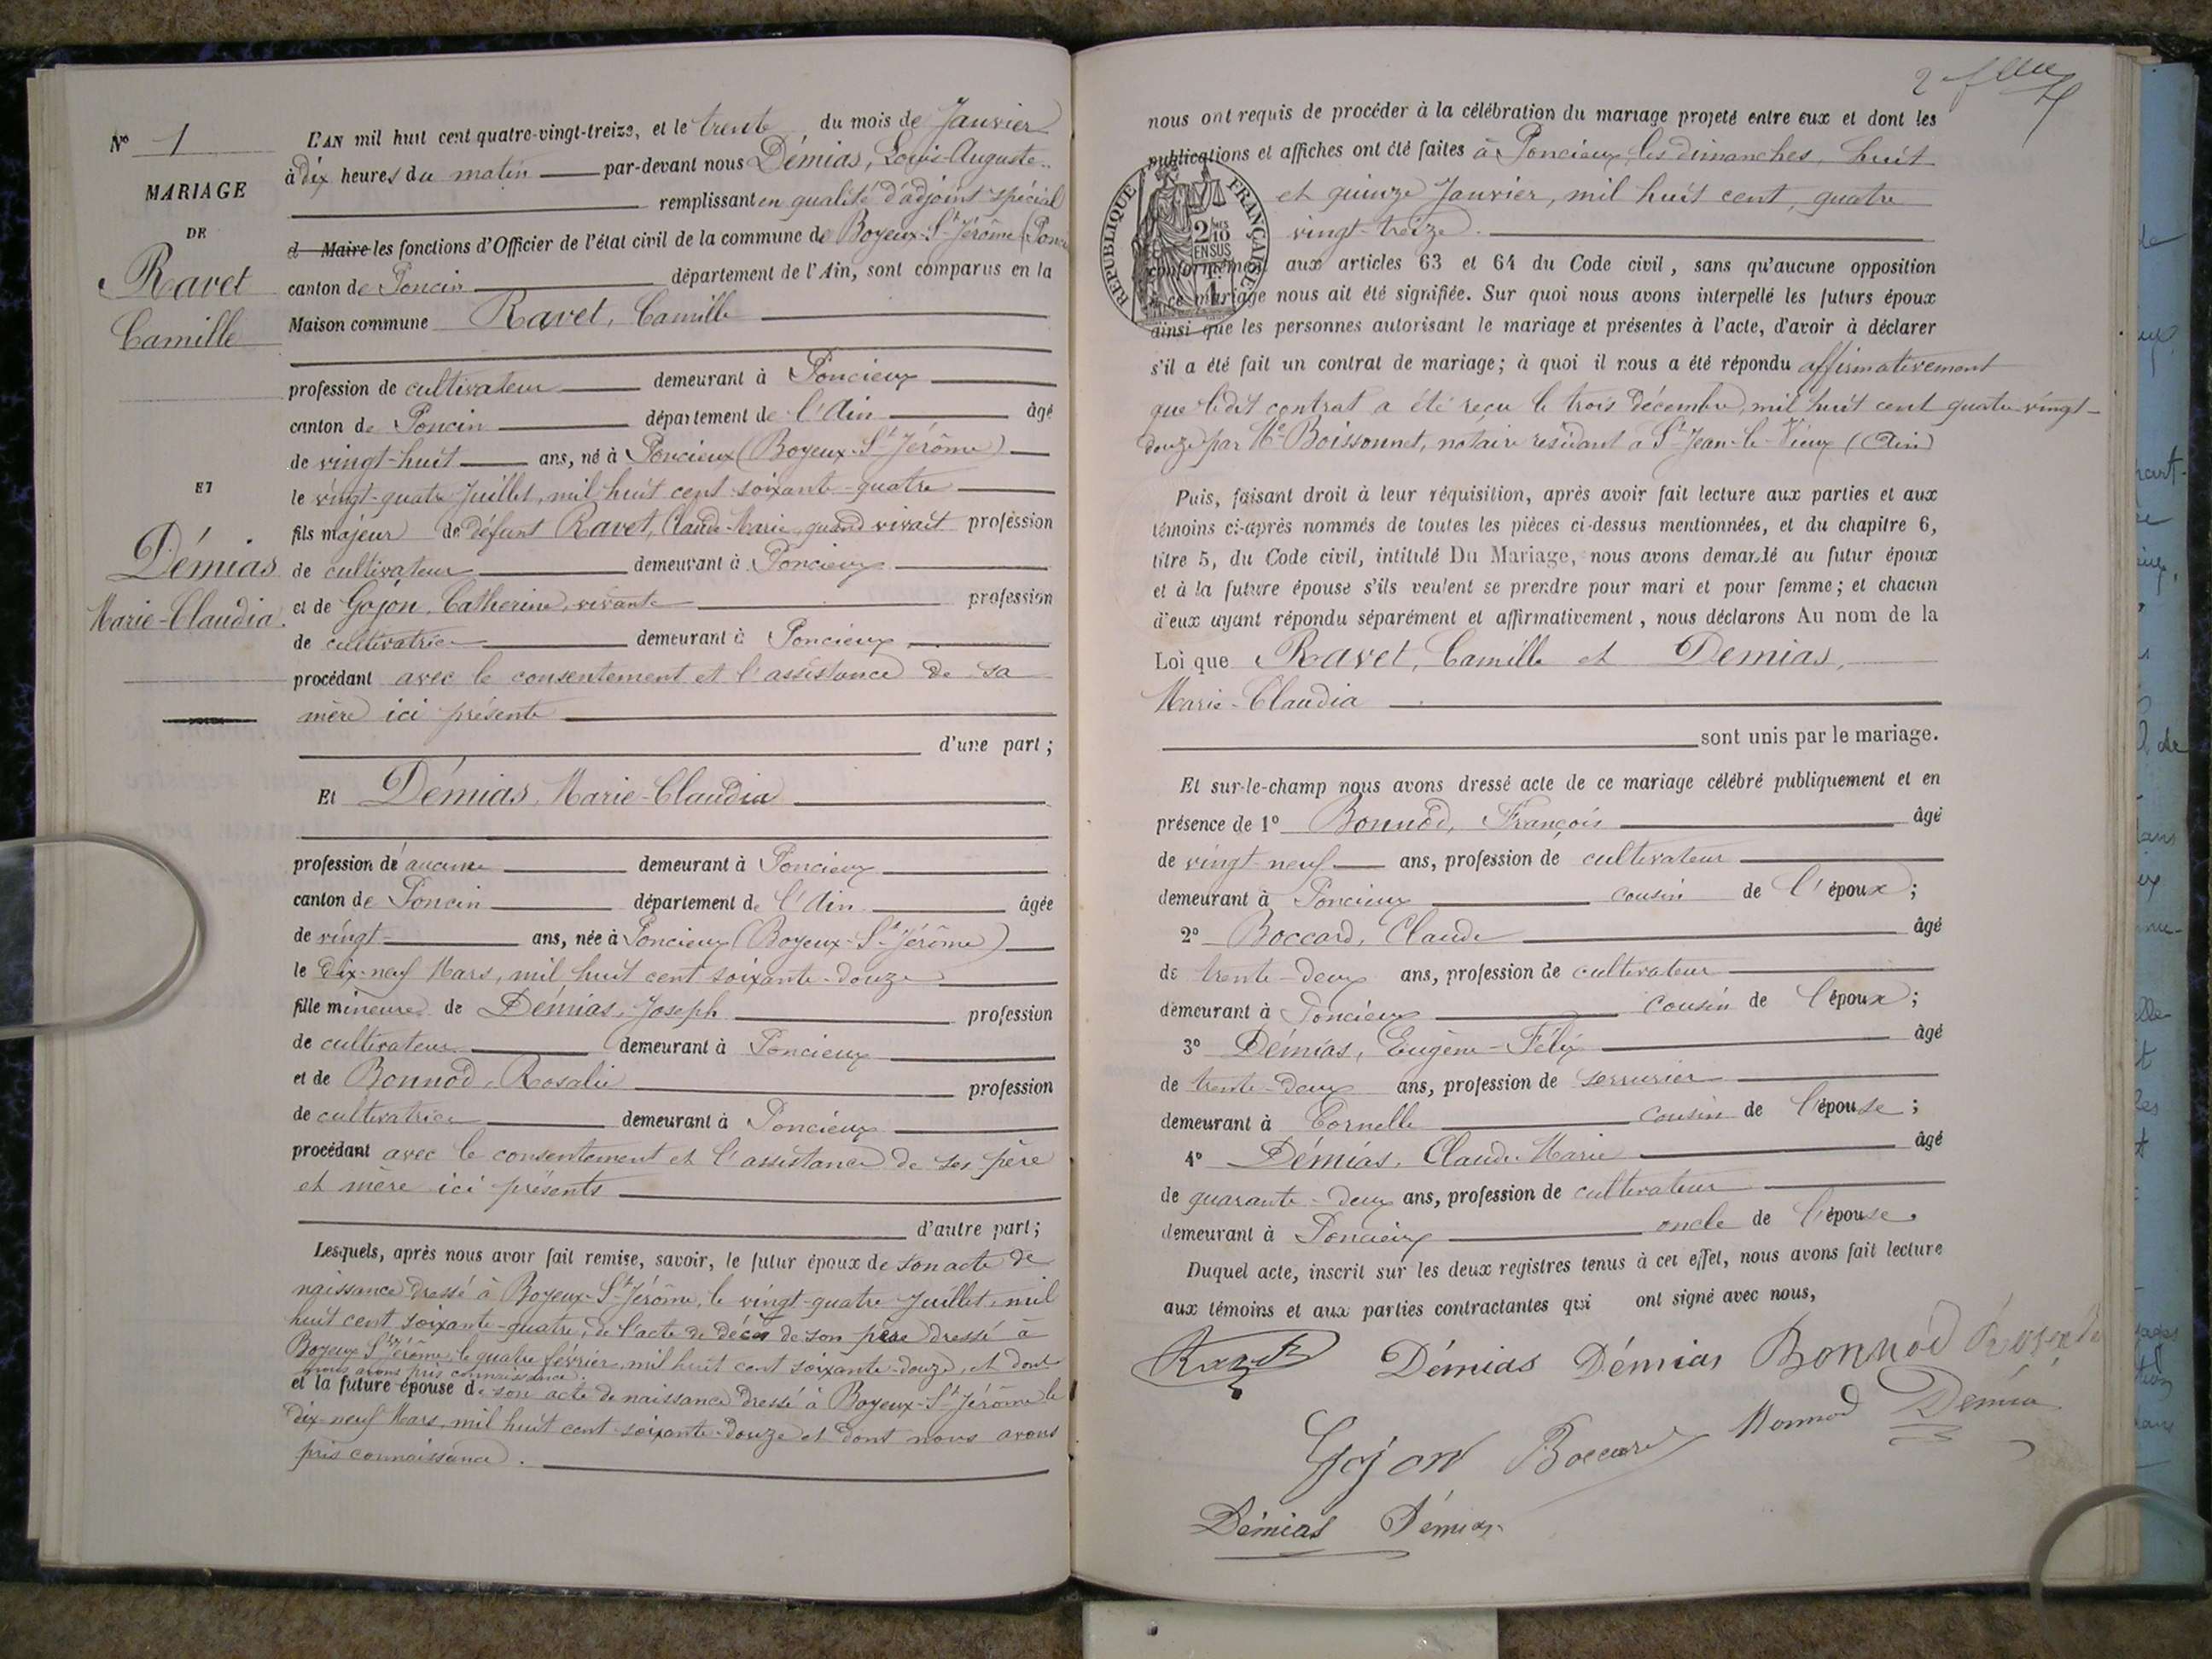 N° 1
MARIAGE
DE
Ravet
Camille
ET
Démias
Marie-Claudia.
L'AN mil huit cent quatre-vingt-treize, et le trente, du mois de Janvier
à dix heures du matin par-devant nous Démias, Louis-Auguste
remplissant en qualité d'adjoint spécial
d Maire les fonctions d'Officier de l'état civil de la commune de Boyeux-St-Jérôme (Ponci
canton de Poncin département de l'Ain, sont comparus en la
Maison commune Ravet, Camille
profession de cultivateur demeurant à Poncieux
canton de Poncin département de l'Ain âgé
de vingt-huit ans, né à Poncieux (Boyeux-St-Jérôme)
le vingt-quatre Juillet, mil huit cent soixante-quatre
fils majeur de défunt Ravet, Claude-Marie, quand vivait profession
de cultivateur demeurant à Poncieux
et de Gojon, Catherine, vivante profession
de cultivatrice demeurant à Poncieux
procédant avec le consentement et l'assistance de sa
mère ici présente
d'une part;
Et Démias, Marie-Claudia
profession de aucune demeurant à Poncieux
canton de Poncin département de l'Ain âgée
de vingt ans, née à Poncieux (Boyeux-St-Jérôme)
le dix-neuf Mars, mil huit cent soixante-douze
fille mineure de Démias, Joseph profession
de cultivateur demeurant à Poncieux
et de Bonnod, Rosalie profession
de cultivatrice demeurant à Poncieux
procédant avec le consentement et l'assistance de ses père
et mère ici présents
d'autre part;
Lesquels, après nous avoir fait remise, savoir, le futur époux de son acte de
naissance dressé à Boyeux-St-Jérôme, le vingt-quatre Juillet, mil
huit cent soixante-quatre, de l'acte de décès de son père dressé à
Boyeux-St-Jérôme, le quatre février, mil huit cent soixante-douze, et dont
nous avons pris connaissance.
et la future épouse de son acte de naissance dressé à Boyeux-St-Jérôme le
dix-neuf Mars, mil huit cent soixante-douze et dont nous avons
pris connaissance.
2
nous ont requis de procéder à la célébration du mariage projeté entre eux et dont les
publications et affiches ont été faites à Poncieux, les dimanches, huit
et quinze Janvier, mil huit cent, quatre
vingt-treize.
RÉPUBLIQUE FRANÇAISE
2/10 EN SUS
conformément aux articles 63 et 64 du Code civil, sans qu'aucune opposition
à ce mariage nous ait été signifiée. Sur quoi nous avons interpellé les futurs époux
ainsi que les personnes autorisant le mariage et présentes à l'acte, d'avoir à déclarer
s'il a été fait un contrat de mariage; à quoi il nous a été répondu affirmativement
que ledit contrat a été reçu le trois décembre, mil huit cent quatre vingt-
douze par Me Boissonnet, notaire résidant à St-Jean-le-Vieux (Ain)
Puis, faisant droit à leur réquisition, après avoir fait lecture aux parties et aux
témoins ci-après nommés de toutes les pièces ci-dessus mentionnées, et du chapitre 6,
titre 5, du Code civil, intitulé Du Mariage, nous avons demandé au futur époux
et à la future épouse s'ils veulent se prendre pour mari et pour femme; et chacun
d'eux ayant répondu séparément et affirmativement, nous déclarons Au nom de la
Loi que Ravet, Camille et Demias,
Marie-Claudia
sont unis par le mariage.
Et sur-le-champ nous avons dressé acte de ce mariage célébré publiquement et en
présence de 1° Bonnod, François âgé
de vingt-neuf ans, profession de cultivateur
demeurant à Poncieux cousin de l'époux;
2° Boccard, Claude âgé
de trente-deux ans, profession de cultivateur
demeurant à Poncieux cousin de l'époux;
3° Démias, Eugène-Félix âgé
de trente-deux ans, profession de serrurier
demeurant à Cornelle cousin de l'épouse;
4° Démias, Claude-Marie âgé
de quarante-deux ans, profession de cultivateur
demeurant à Poncieux oncle de l'épouse.
Duquel acte, inscrit sur les deux registres tenus à cet effet, nous avons fait lecture
aux témoins et aux parties contractantes qui ont signé avec nous,
Ravet Démias Démias Bonnod
Gojon Boccard Monnod Démia
Démias Démias